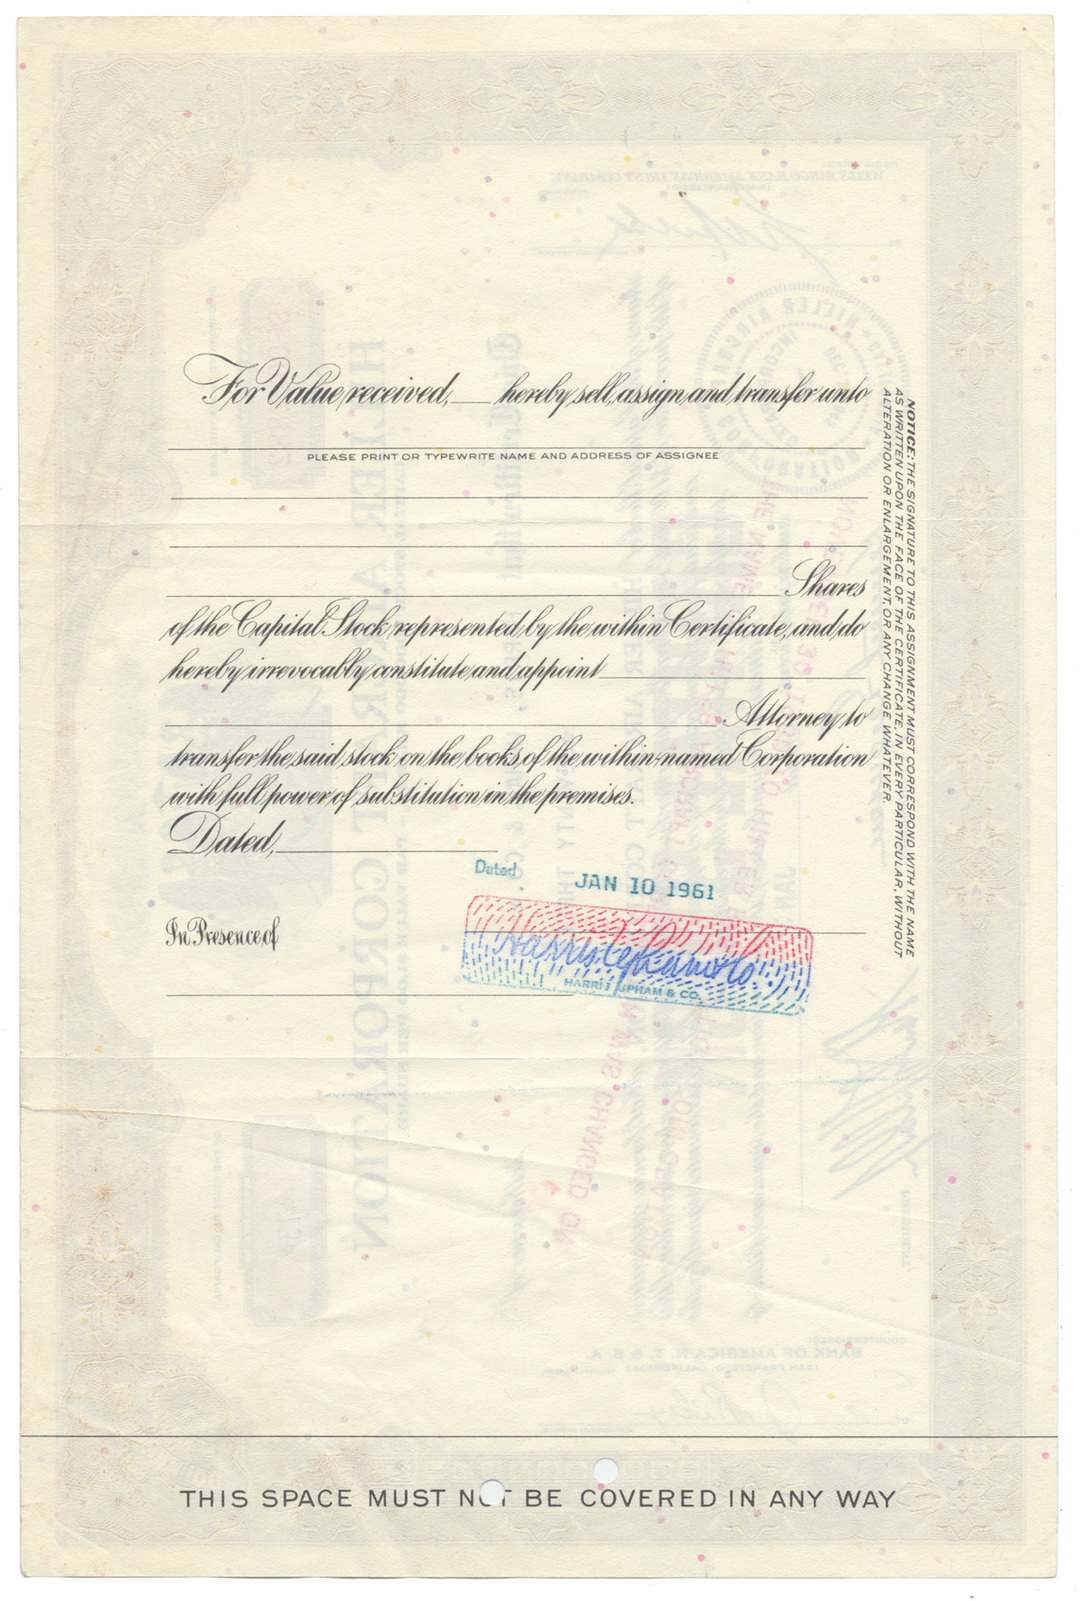 For Value received, ___ hereby sell, assign and transfer unto
PLEASE PRINT OR TYPEWRITE NAME AND ADDRESS OF ASSIGNEE
Shares
of the Capital Stock represented by the within Certificate, and do
hereby irrevocably constitute and appoint
Attorney to
transfer the said stock on the books of the within-named Corporation
with full power of substitution in the premises.
Dated,
Dated JAN 10 1961
In Presence of
Harris Upham & Co.
HARRIS UPHAM & CO.
NOTICE: THE SIGNATURE TO THIS ASSIGNMENT MUST CORRESPOND WITH THE NAME
AS WRITTEN UPON THE FACE OF THE CERTIFICATE, IN EVERY PARTICULAR, WITHOUT
ALTERATION OR ENLARGEMENT, OR ANY CHANGE WHATEVER.
THIS SPACE MUST NOT BE COVERED IN ANY WAY